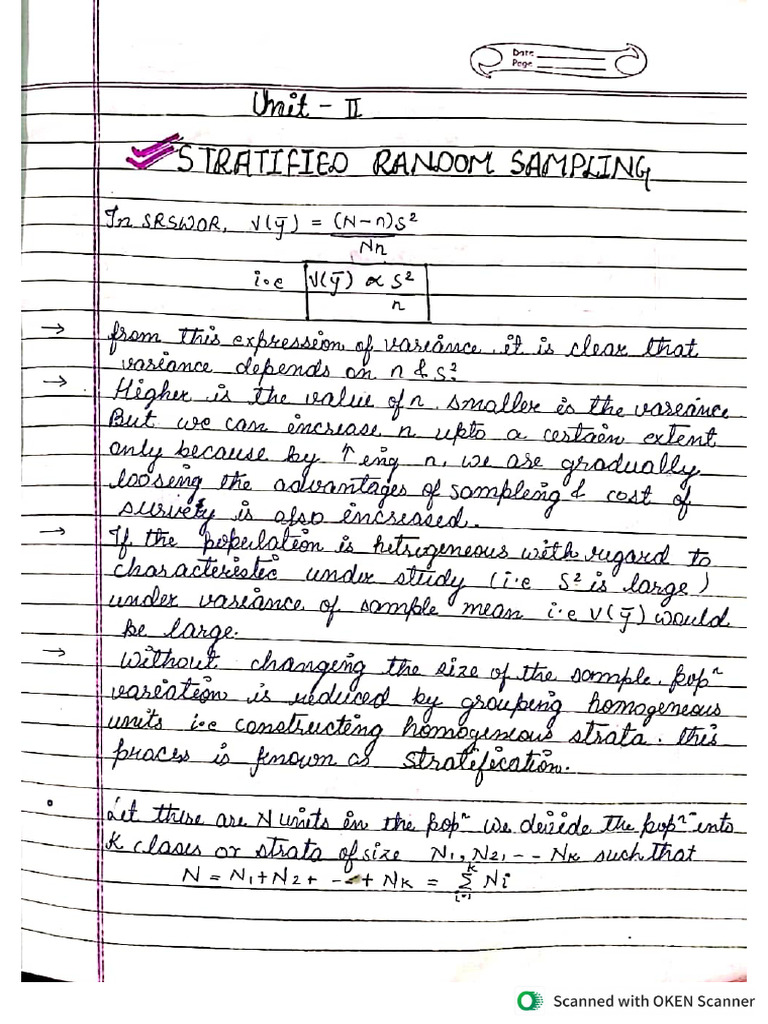 Date
Page
Unit - II
STRATIFIED RANDOM SAMPLING
In SRSWOR, V(ȳ) = (N-n)S²
Nn
i.e V(ȳ) ∝ S²
n
→ from this expression of variance it is clear that
variance depends on n & S².
→ Higher is the value of n smaller is the variance
But we can increase n upto a certain extent
only because by ↑ing n, we are gradually
loosing the advantages of sampling & cost of
survety is also increased.
→ If the population is hetrogeneous with regard to
characteristic under study (i.e S² is large)
under variance of sample mean i.e V(ȳ) would
be large.
→ Without changing the size of the sample, popⁿ
variation is reduced by grouping homogeneous
units i.e constructing homogeneous strata. this
process is known as stratification.
• Let there are N units in the popⁿ we devide the popⁿ into
K clases or strata of size N₁, N₂, -- Nₖ such that
N = N₁+N₂+ --+ Nₖ = Σᵢ₌₁ᵏ Ni
Scanned with OKEN Scanner